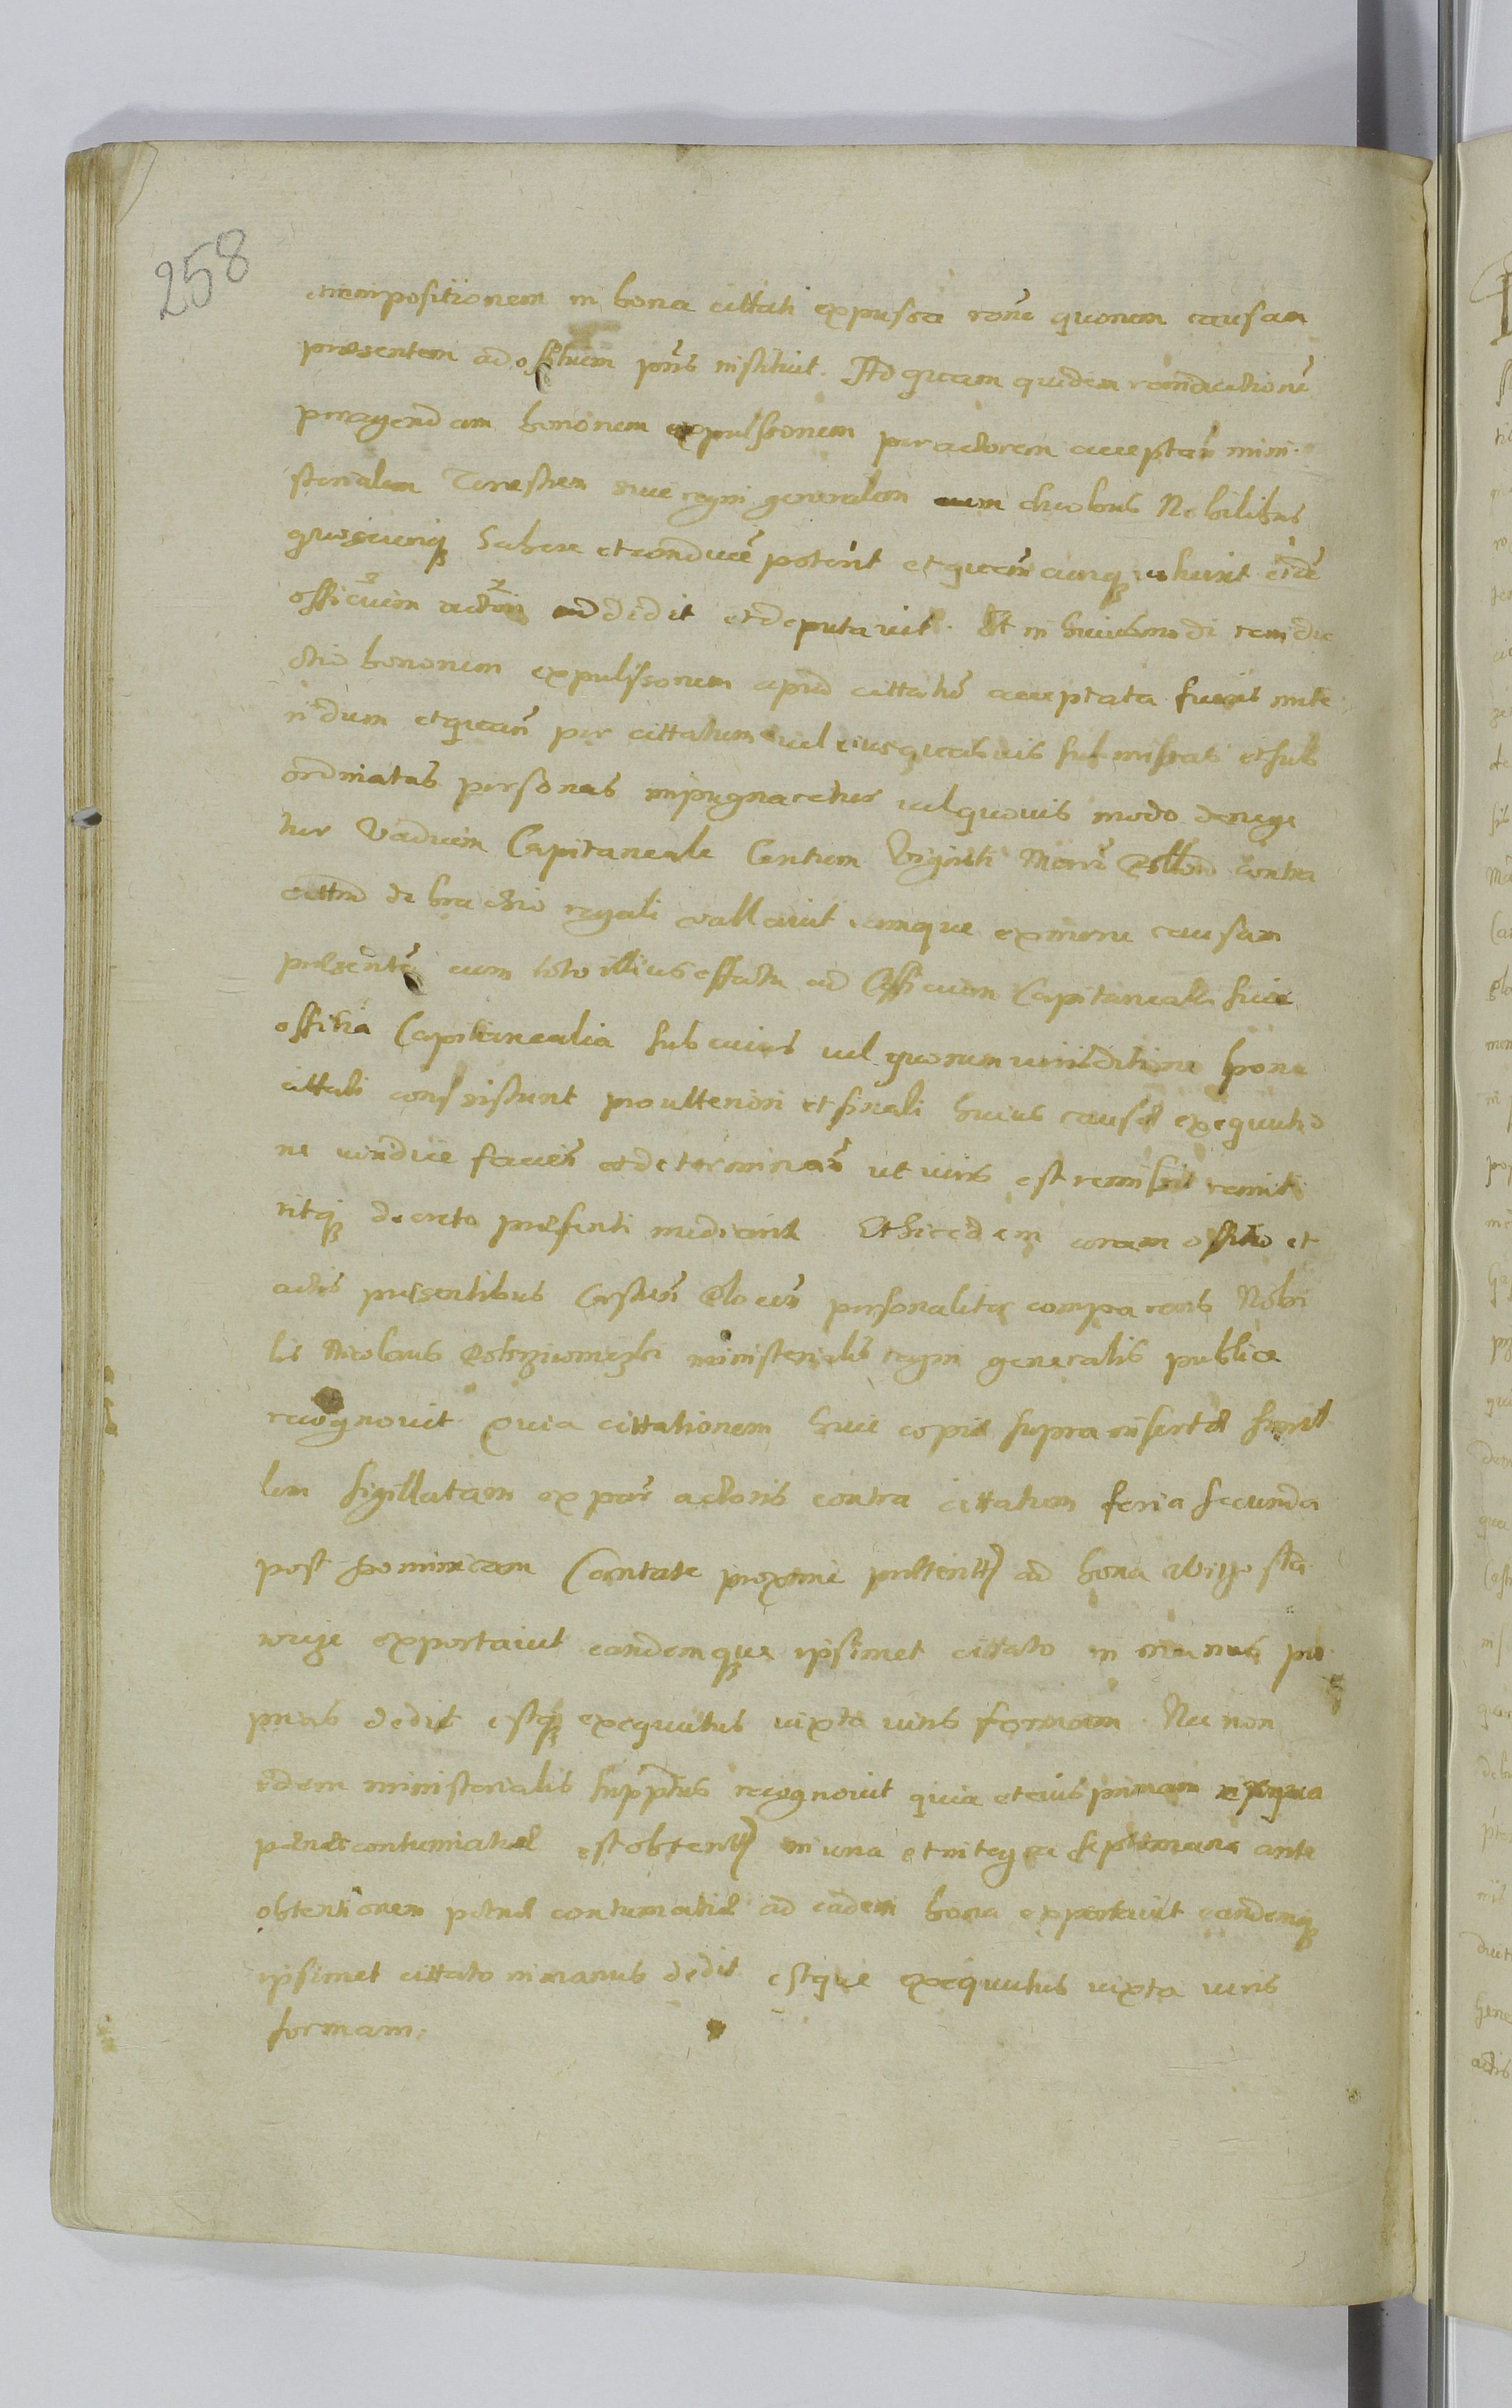 258
impositionem in bona cittati expulsa rone quorum causam
præsentem ad offitium pñs instituit. Ad quam quidem condictionẽ
peragendam bonorum expulsionem per actorem acceptañ mini
sterialem Terrestrem siue regni generalem cum duobus Nobilibus
quoscunq habere et conducẽ poterit et quem cunq voluerit eidẽ
officium actori addidit et deputauit. Et in huiusmodi condic
bonorum expulsionem apud cittatũ acceptata fueris
per cittatum vel eius quasuis submissas et sub
ordinatas personas impugnaretur vel quouis modo denega
tur Vadium Capitaneale Centum Viginti Marc Pollon contra
cittm de brachio regali vallauit eamque ex nunc causam
præsentẽ cum toto illius effectu ad Officium Capitaneale siue
offitia Capitanealia sub cuius vel quorum iurisditione bona
cittati consistunt pro ulteriori et finali huius causæ exequutio
ne iuridice facieñ et determinañ ut iuris est remisit remit
titq decreto præsenti mediante Et hic idem coram offitio et
actis præsentibus Castreñ personaliter comparens Nobi
lis Nicolaus ministerialis regni generalis publice
recognouit quia cittationem huic copiæ supra insertæ simil
lem sigillatam ex parte actoris contra cittatum feria secunda
post Dominicam Cantate proxime præterit ad bona
exportauit eandemque ipsimet cittato in manus pro
prias dedit estq exequutus iuxta iuris formam Nec non
idem ministerialis supptus recognouit quia et eius primam ex qua
pœna contumatiæ est obtent in una et integra septimana ante
obtentionem pœnæ contumatiæ ad eadem bona exportauit eandemq
ipsimet cittato in manus dedit estque exequutus iuxta iuris
formam.